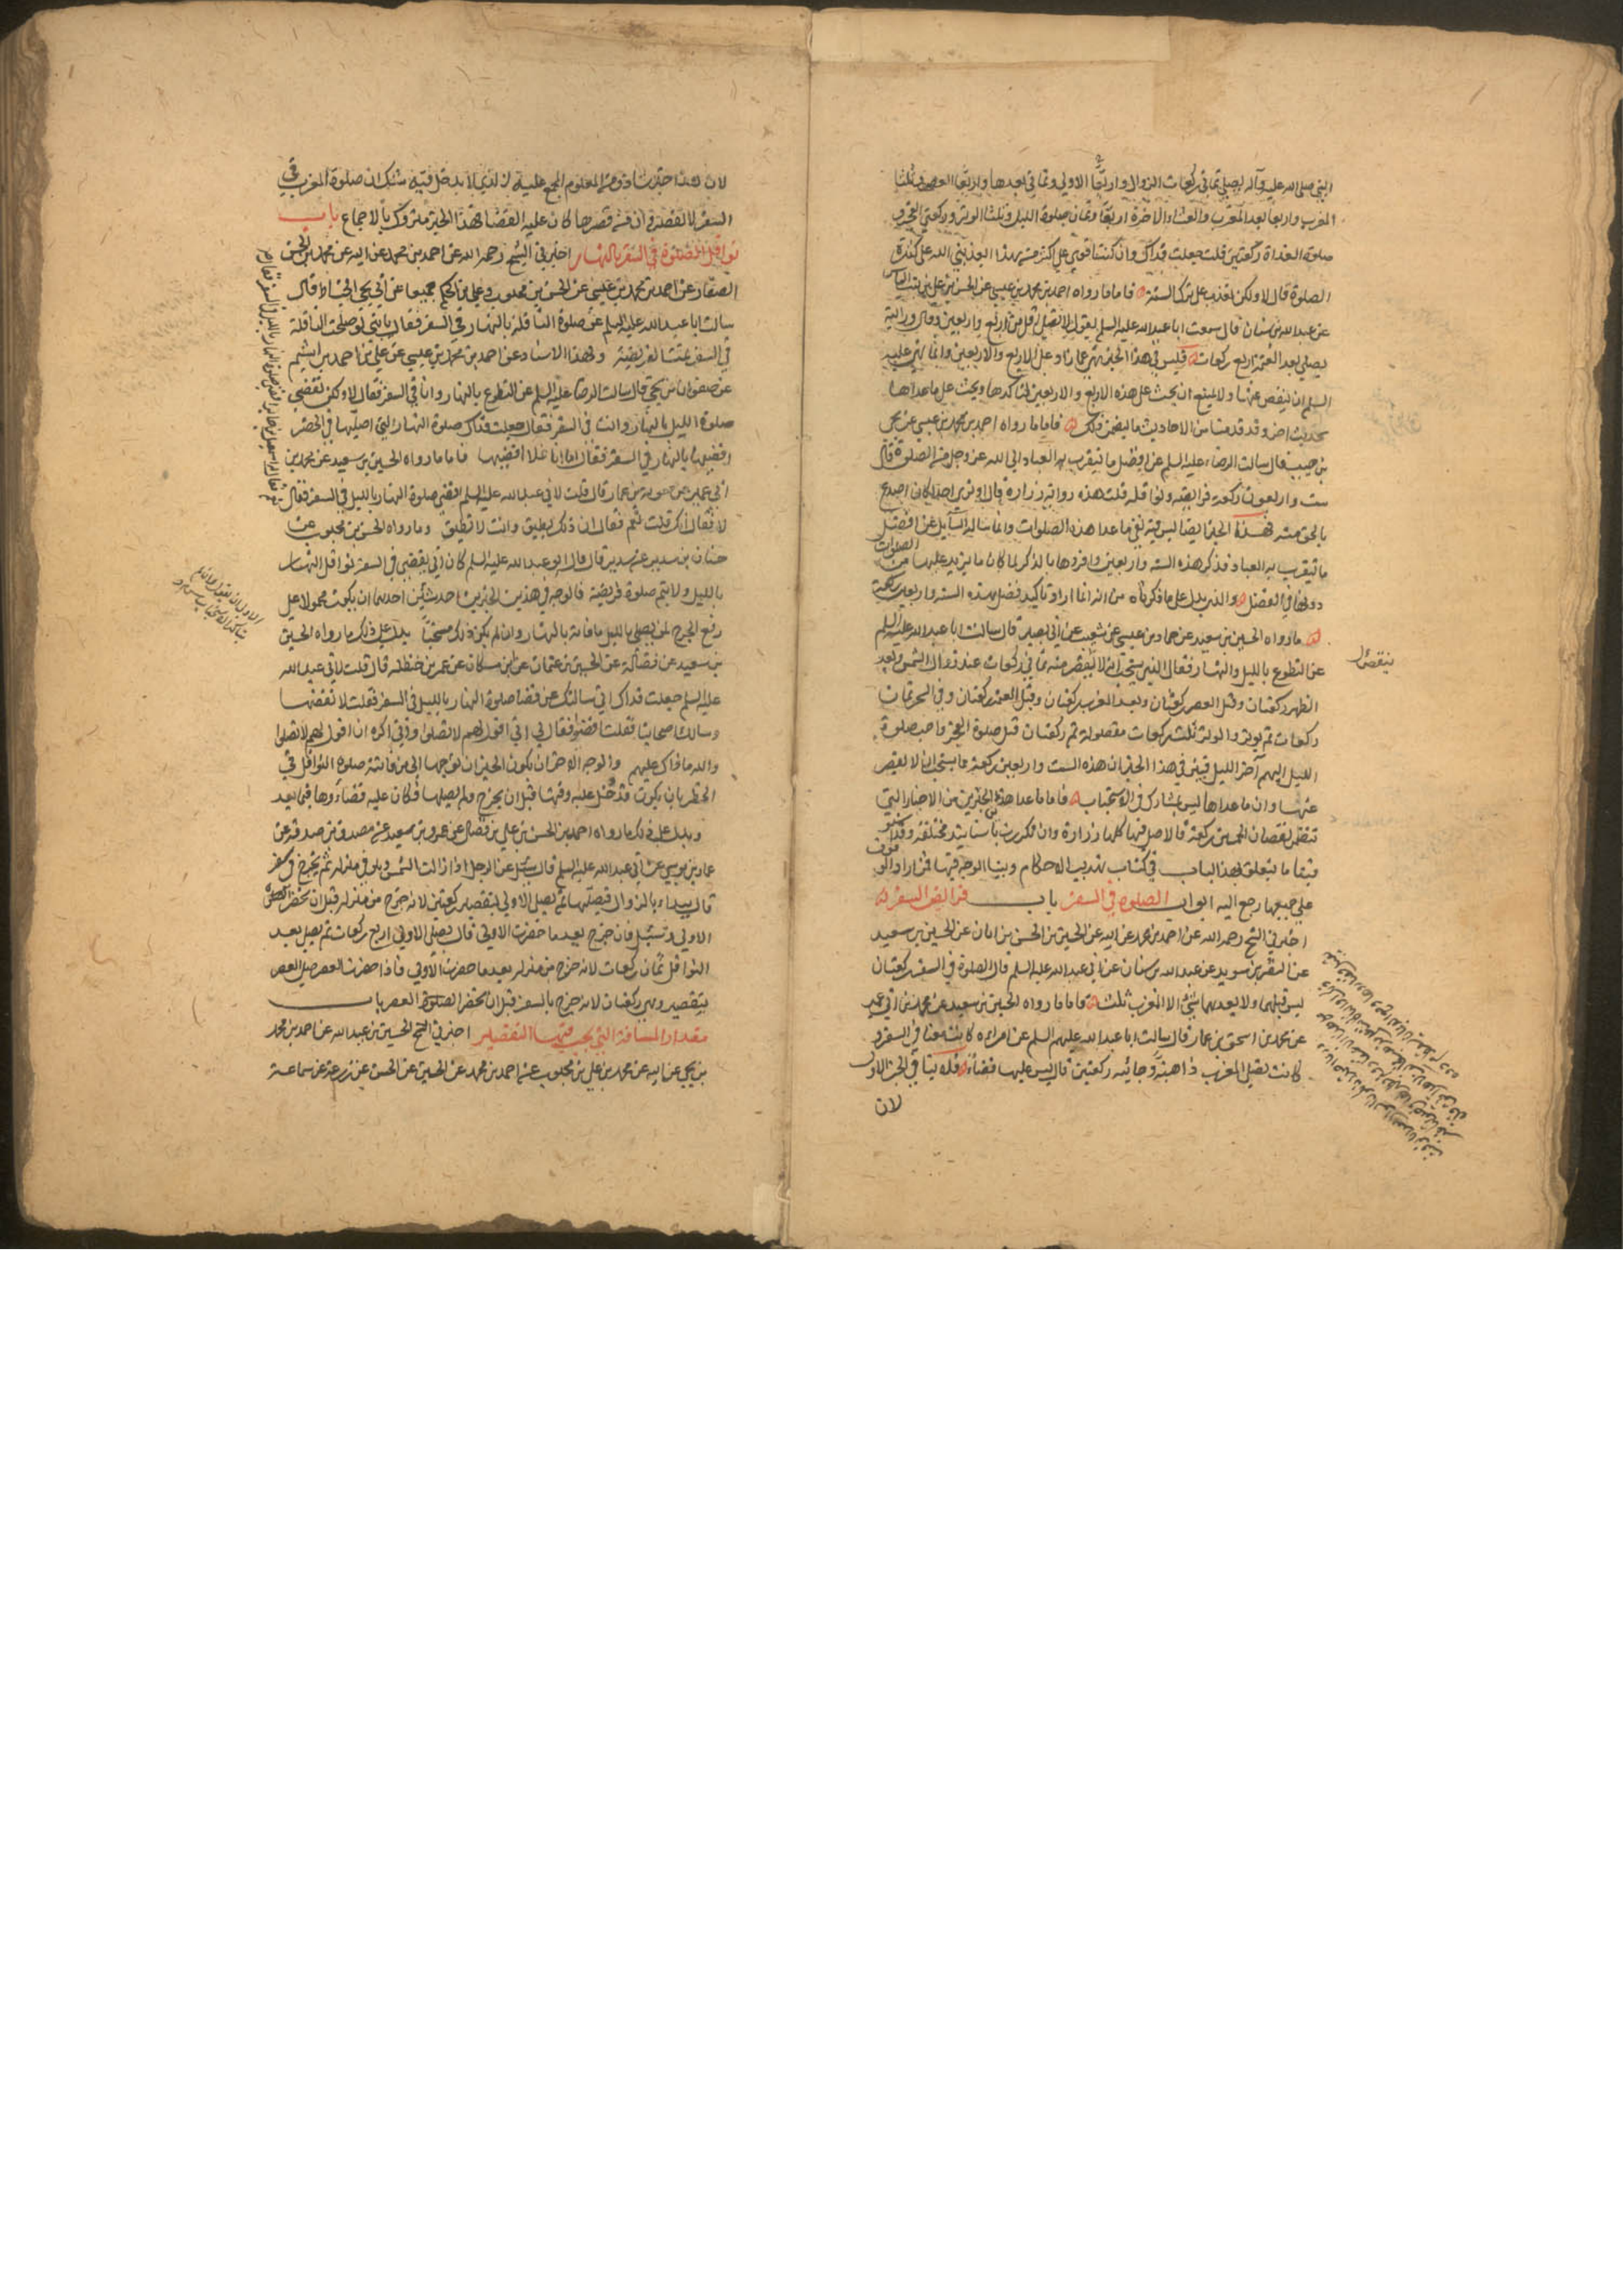 النبي صلى الله عليه وآله يصلي ثماني ركعات الزوال واربعا الاولى وثماني بعدها واربعا العصر وثلثا
المغرب واربعا بعد المغرب والعشاء الاخرة اربعا وثمان صلوة الليل وثلثا الوتر وركعتي الفجر و
صلوة الغداة ركعتين قلت جعلت فداك وان كنت اقوى على اكثر من هذا يعذبني الله على كثرة
الصلوة قال لا ولكن يعذب على ترك السنة فاما ما رواه احمد بن محمد بن عيسى عن الحسن بن علي بن بنت الياس
عن عبد الله بن سنان قال سمعت ابا عبد الله عليه السلم يقول لا تصل اقل من اربع واربعين وقال ورايته
يصلي بعد العتمة اربع ركعات فليس في هذا الخبر نهي عما زاد على الاربع والاربعين وانما نهى عليه
السلم ان ينقص عنها ولا يمتنع ان يحث على هذه الاربع والاربعين لتاكدها ويحث على ما عداها
بحديث اخر وقد قدمنا من الاحاديث ما يتضمن ذلك فاما ما رواه احمد بن محمد بن عيسى عن يحيى
بن حبيب قال سالت الرضا عليه السلم عن افضل ما يتقرب به العباد الى الله عز وجل من الصلوة قال
ست واربعون ركعة فرايضه ونوافله قلت هذه رواية زرارة قال اوترى احدا كان اصدع
بالحق منه فهذا الخبر ايضا ليس فيه نفي ما عدا هذه الصلوات وانما ساله السايل عن افضل
ما يتقرب به العباد فذكر هذه الستة واربعين وافردها بالذكر لما كان ما يزيد عليها من الصلوات
دونها في الفضل والذي يدل على ما ذكرناه من انه انما اراد تاكيد فضل هذه الستة واربعين ركعة
ما رواه الحسين بن سعيد عن حماد بن عيسى عن شعيب عن ابي بصير قال سالت ابا عبد الله عليه السلم
عن التطوع بالليل والنهار فقال الذي يستحب ان لا يقصر منه ثماني ركعات عند زوال الشمس وبعد
الظهر ركعتان وقبل العصر ركعتان وبعد المغرب ركعتان وقبل العتمة ركعتان وفي السحر ثمان
ركعات ثم يوتر والوتر ثلث ركعات مفصولة ثم ركعتان قبل صلوة الفجر واحب صلوة
الليل اليهم اخر الليل فبين في هذا الخبر ان هذه الست واربعين ركعة مما يستحب ان لا يقصر
عنها وان ما عداها ليس بمشارك في الاستحباب فاما ما عدا هذين الخبرين من الاخبار التي
تتضمن نقصان الخمسين ركعة فالاصل فيها كلها زرارة وان تكررت باسانيد مختلفة وقد
متبعا ما يتعلق بهذا الباب في كتاب تهذيب الاحكام وبينا الوجه فيها فمن اراد الوقوف
على جميعها رجع اليه ابواب الصلوة في السفر باب فرائض السفر
اخبرني الشيخ رحمه الله عن احمد بن محمد عن ابيه عن الحسين بن الحسن بن ابان عن الحسين بن سعيد
عن النضر بن سويد عن عبد الله بن سنان عن ابي عبد الله عليه السلم قال الصلوة في السفر ركعتان
ليس قبلهما ولا بعدهما شيء الا المغرب ثلث فاما ما رواه الحسين بن سعيد عن محمد بن ابي عمير
عن محمد بن اسحق بن عمار قال سالت ابا عبد الله عليه السلم عن امراة كانت معنا في السفر و
كانت تصلي المغرب ذاهبة وجائية ركعتين قال ليس عليها قضاء فلا ينافي الخبر الاول
لان
لان هذا خبر شاذ ومن المعلوم المجمع عليه الذي لا يدخل فيه شك ان صلوة المغرب في
السفر لا تقصر وان من قصرها كان عليه القضا فهذا الخبر متروك بالاجماع باب
نوافل الصلوة في السفر بالنهار اخبرني الشيخ رحمه الله عن احمد بن محمد عن ابيه عن محمد بن الحسن
الصفار عن احمد بن محمد بن عيسى عن الحسن بن محبوب وعلي بن الحكم جميعا عن ابي يحيى الحناط قال
سالت ابا عبد الله عليه السلم عن صلوة النافلة بالنهار في السفر فقال يا بني لو صلحت النافلة
في السفر تمت الفريضة وبهذا الاسناد عن احمد بن محمد بن عيسى عن علي بن احمد بن اشيم
عن صفوان بن يحيى قال سالت الرضا عليه السلم عن التطوع بالنهار وانا في السفر فقال لا ولكن تقضي
صلوة الليل بالنهار وانت في السفر فقلت جعلت فداك صلوة النهار التي اصليها في الحضر
اقضيها بالنهار في السفر فقال اما انا فلا اقضيها فاما ما رواه الحسين بن سعيد عن محمد بن
ابي عمير عن معوية بن عمار قال قلت لابي عبد الله عليه السلم اقضي صلوة النهار بالليل في السفر فقال
لا فقال انك قلت نعم فقال ان ذلك يطيق وانت لا تطيق وما رواه الحسن بن محبوب عن
حنان بن سدير عن سدير قال قال ابو عبد الله عليه السلم كان ابي يقضي في السفر نوافل النهار
بالليل ولا يتم صلوة فريضة فالوجه في هذين الخبرين احد شيئين احدهما ان يكون محمولا على
رفع الحرج لمن يصلي بالليل ما فاته بالنهار وان لم يكن ذلك مستحبا يدل على ذلك ما رواه الحسين
بن سعيد عن فضالة عن الحسين بن عثمان عن ابن مسكان عن عمر بن حنظلة قال قلت لابي عبد الله
عليه السلم جعلت فداك اني سالتك عن قضا صلوة النهار بالليل في السفر فقلت لا تقضها
وسالك اصحابنا فقلت اقضوا فقال لي اني اقول لهم لا تصلوا واني اكره ان اقول لهم لا تصلوا
والله ما ذاك عليهم والوجه الاخر ان يكون الخبران توجها الى من فاتته صلوة النوافل في
الحضر بان يكون قد دخل عليه وقتها قبل ان يخرج ولم يصلها فكان عليه قضاءوها فيما بعد
ويدل على ذلك ما رواه احمد بن الحسن بن علي بن فضال عن عمرو بن سعيد عن مصدق بن صدقة عن
عمار بن موسى عن ابي عبد الله عليه السلم قال سئل عن الرجل اذا زالت الشمس وهو في منزله ثم يخرج في سفر
قال يبداء بالزوال فيصليها ثم يصلي الاولى بتقصير ركعتين لانه خرج من منزله قبل ان تحضر الصلوة
الاولى وسئل فان خرج بعد ما حضرت الاولى قال يصلي الاولى اربع ركعات ثم يصلي بعد
النوافل ثمان ركعات لانه خرج من منزله بعد ما حضرت الاولى فاذا حضرت العصر صلى العصر
بتقصير وهي ركعتان لانه خرج بالسفر قبل ان تحضر الصلوة العصر باب
مقدار المسافة التي يجب فيها التقصير اخبرني الشيخ الحسين بن عبد الله عن احمد بن محمد
بن يحيى عن ابيه عن محمد بن علي بن محبوب عن احمد بن محمد عن الحسين عن الحسن عن زرعة عن سماعة